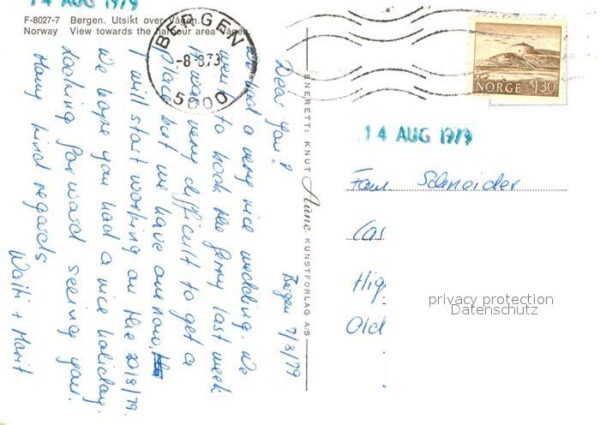 14 AUG 1979
F-8027-7 Bergen. Utsikt over Vågen.
Norway View towards the harbour area Vågen.
BERGEN
-8.8.79
5000
NORGE 1,30
14 AUG 1979
ENERETT: KNUT Aune KUNSTFORLAG A/S
Bergen 7/8/79
Dear you!
We had a very nice wedding. We
went to book the ferry last week
It was very difficult to get a
place but we have one now,
I will start working on the 20/8/79.
We hope you had a nice holiday.
Looking forward seeing you.
Many kind regards
+ Marit
Fam Schneider
Cas
Hig
Old
privacy protection
Datenschutz